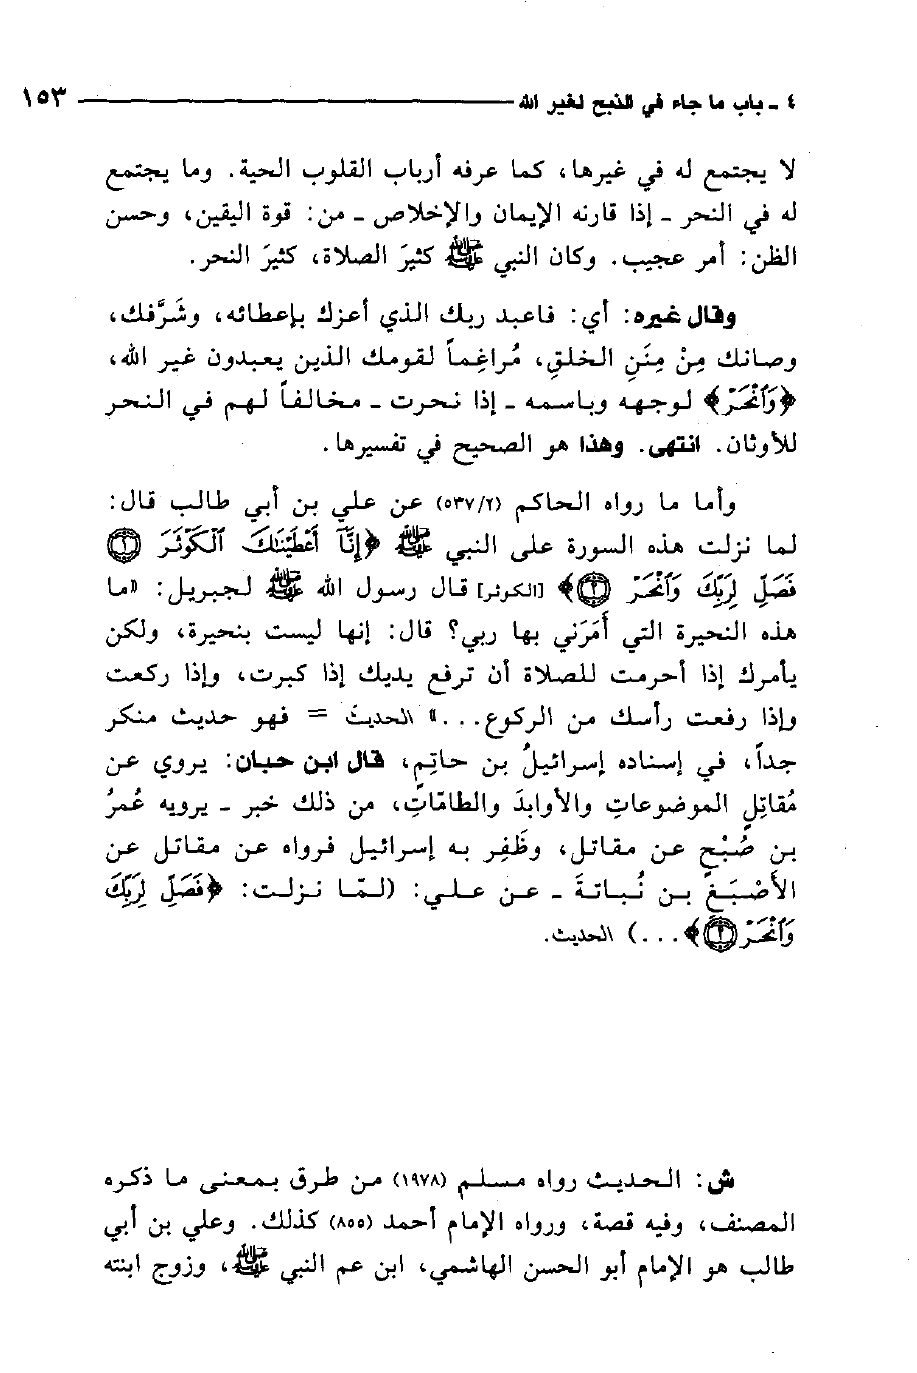 ٤ - باب ما جاء في الذبح لغير الله ١٥٣
لا يجتمع له في غيرها، كما عرفه أرباب القلوب الحية. وما يجتمع
له في النحر - إذا قارنه الإيمان والإخلاص - من: قوة اليقين، وحسن
الظن: أمر عجيب. وكان النبي ﷺ كثيرَ الصلاة، كثيرَ النحر.
وقال غيره: أي: فاعبد ربك الذي أعزك بإعطائه، وشَرَّفك،
وصانك مِنْ مِنَنِ الخلقِ، مُراغِماً لقومك الذين يعبدون غير الله،
﴿وَٱنْحَرْ﴾ لوجهه وباسمه - إذا نحرت - مخالفاً لهم في النحر
للأوثان. انتهى. وهذا هو الصحيح في تفسيرها.
وأما ما رواه الحاكم (٥٣٧/٢) عن علي بن أبي طالب قال:
لما نزلت هذه السورة على النبي ﷺ ﴿إِنَّآ أَعْطَيْنَٰكَ ٱلْكَوْثَرَ ١
فَصَلِّ لِرَبِّكَ وَٱنْحَرْ ٢﴾ [الكوثر] قال رسول الله ﷺ لجبريل: «ما
هذه النحيرة التي أَمَرَني بها ربي؟ قال: إنها ليست بنحيرة، ولكن
يأمرك إذا أحرمت للصلاة أن ترفع يديك إذا كبرت، وإذا ركعت
وإذا رفعت رأسك من الركوع...» الحديثَ = فهو حديث منكر
جداً، في إسناده إسرائيلُ بن حاتِم، قال ابن حبان: يروي عن
مُقاتِلٍ الموضوعاتِ والأوابدَ والطامّاتِ، من ذلك خبر - يرويه عُمرُ
بن صُبْحٍ عن مقاتل، وظَفِر به إسرائيل فرواه عن مقاتل عن
الأَصْبَغِ بن نُباتةَ - عن علي: (لمّا نزلت: ﴿فَصَلِّ لِرَبِّكَ
وَٱنْحَرْ ٢﴾...) الحديث.
ش: الحديث رواه مسلم (١٩٧٨) من طرق بمعنى ما ذكره
المصنف، وفيه قصة، ورواه الإمام أحمد (٨٥٥) كذلك. وعلي بن أبي
طالب هو الإمام أبو الحسن الهاشمي، ابن عم النبي ﷺ، وزوج ابنته